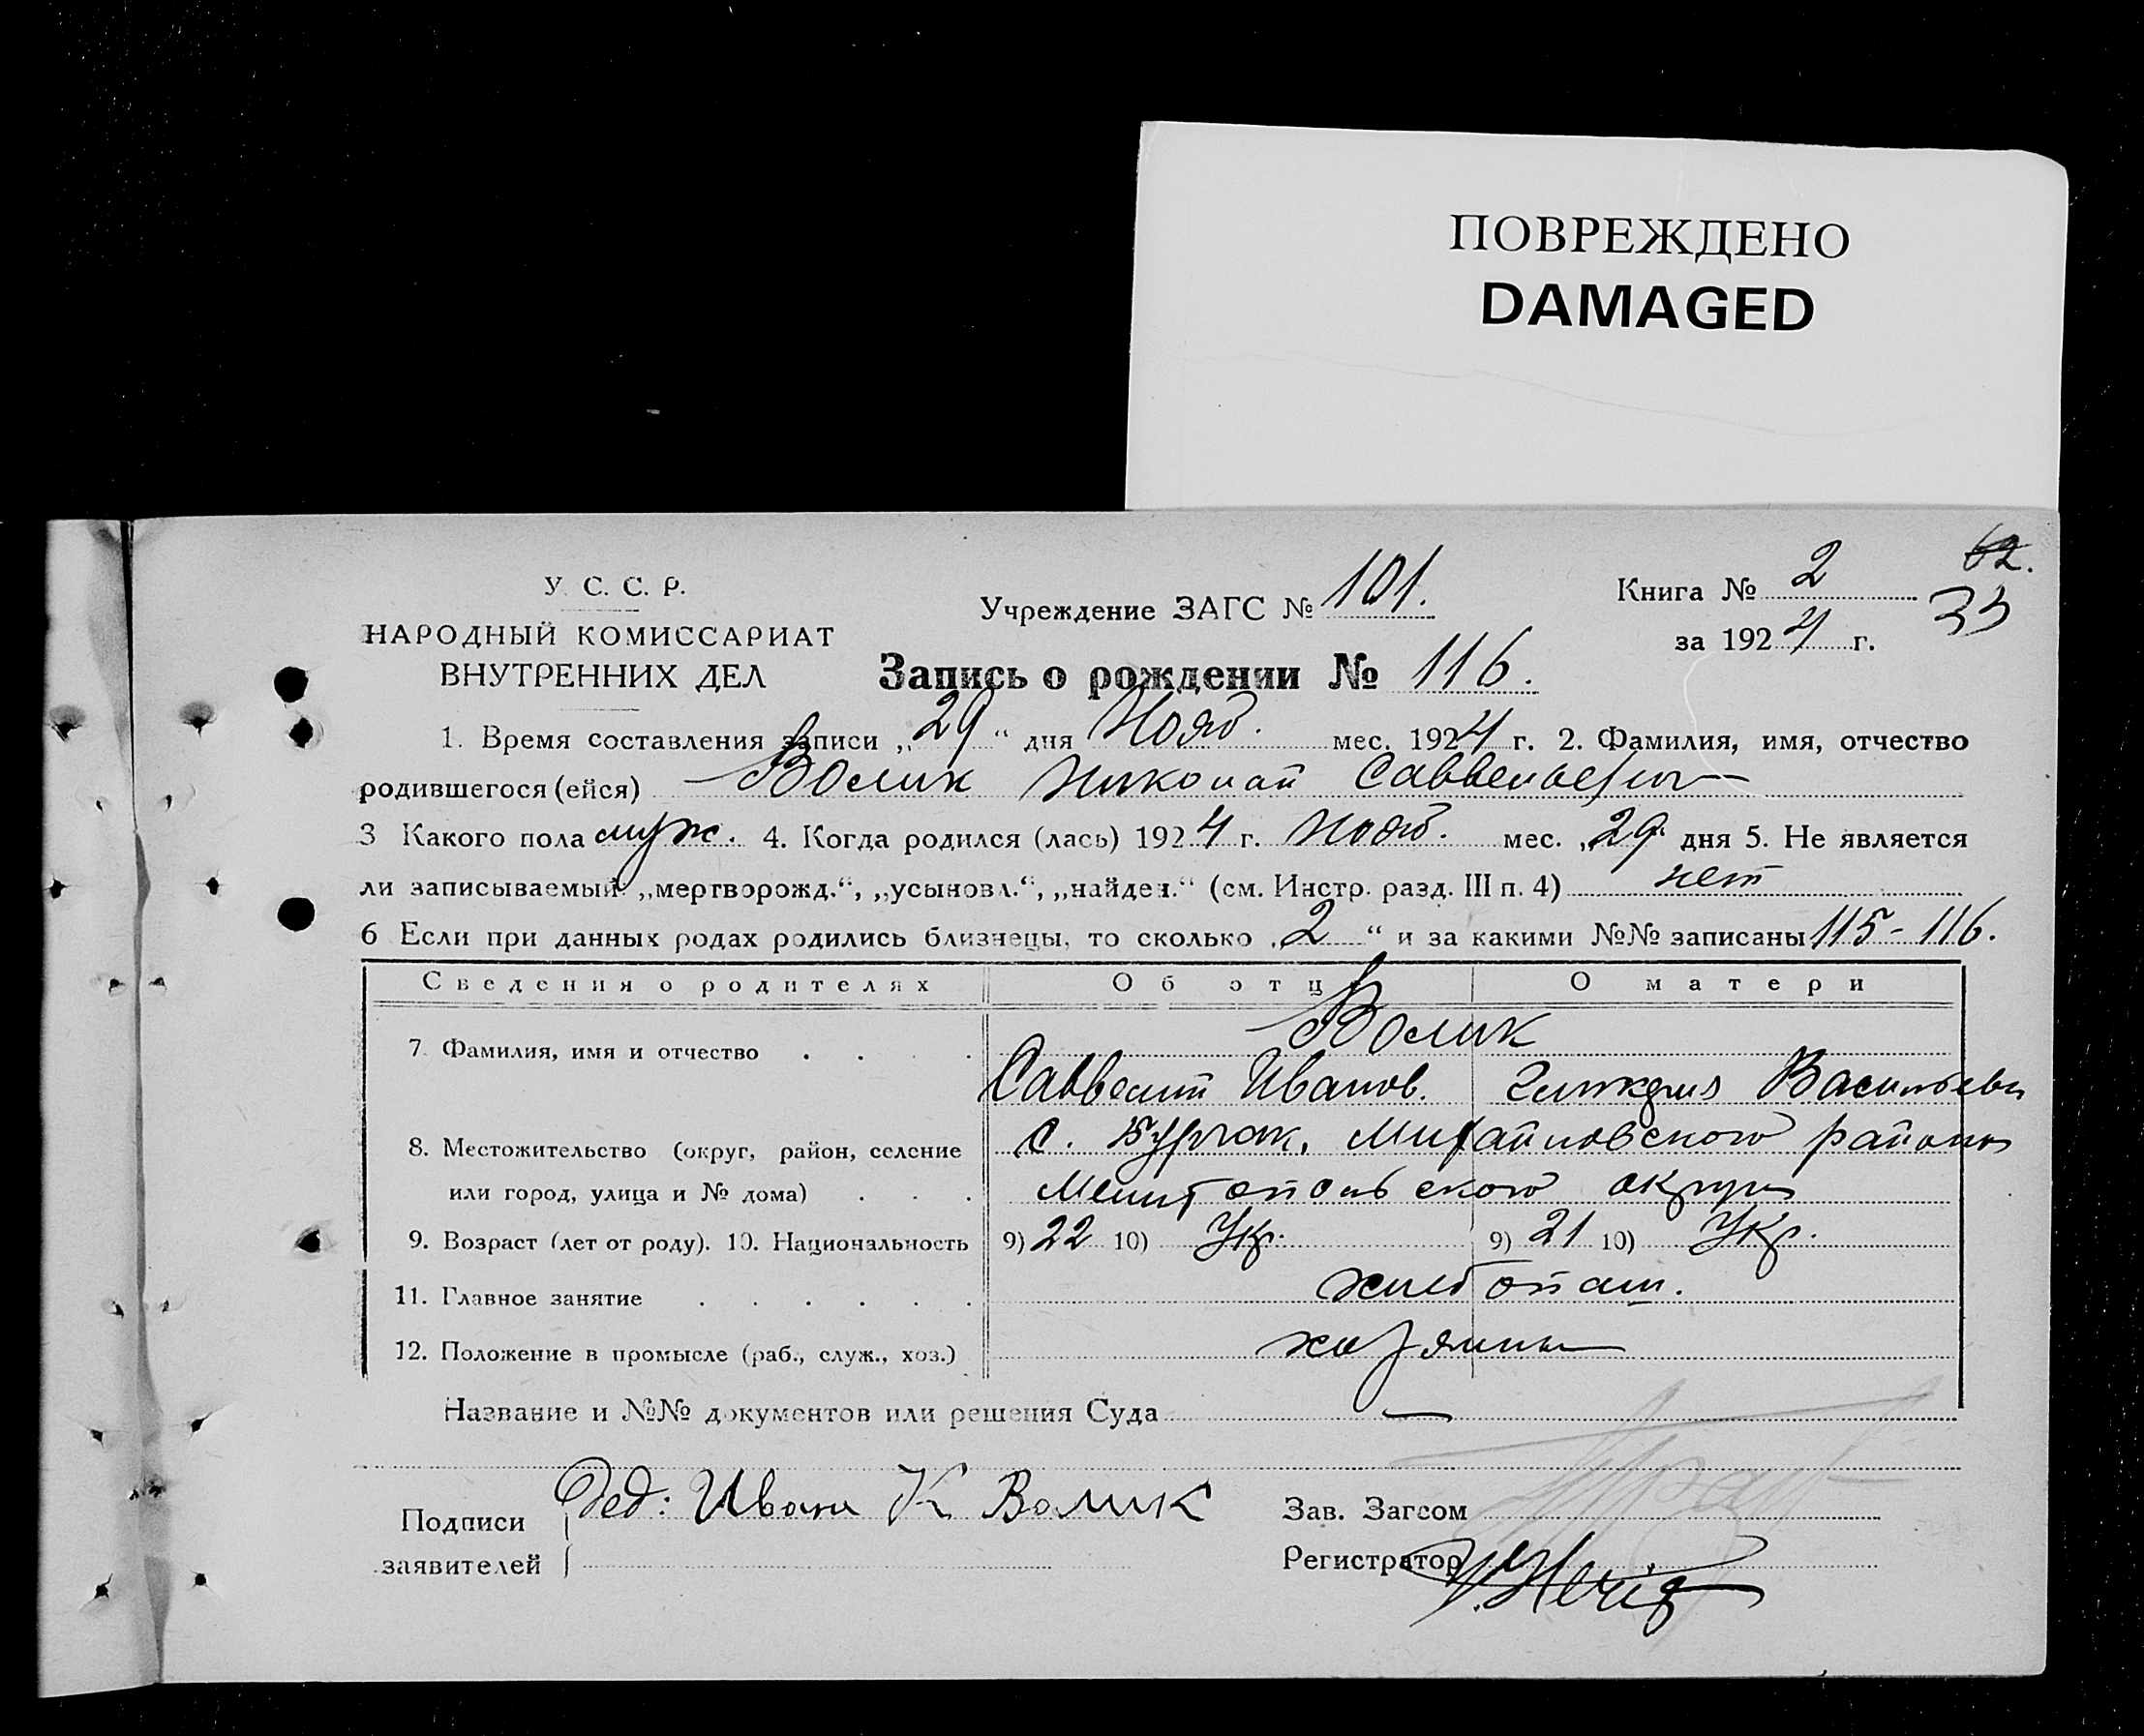 ПОВРЕЖДЕНО
DAMAGED
62.
У. С. С. Р.
НАРОДНЫЙ КОМИССАРИАТ
ВНУТРЕННИХ ДЕЛ
Учреждение ЗАГС № 101.
Книга № 2
33
за 1924 г.
Запись о рождении № 116.
1. Время составления записи „29“ дня Нояб. мес. 1924 г. 2. Фамилия, имя, отчество
родившегося (ейся) Волик Николай Савельевич
3 Какого пола муж. 4. Когда родился (лась) 1924 г. Нояб. мес. „29 дня 5. Не является
ли записываемый „мертворожд.“, „усыновл.“, „найден.“ (см. Инстр. разд. III п. 4) нет
6 Если при данных родах родились близнецы, то сколько „2“ и за какими №№ записаны 115-116.
Сведения о родителях Об отце О матери
7. Фамилия, имя и отчество Волик
Савелий Иванов. Васильевн
8. Местожительство (округ, район, селение с. Бурчак, Михайловского района
или город, улица и № дома) Мелитопольского округа
9. Возраст (лет от роду). 10. Национальность 9) 22 10) Укр. 9) 21 10) Укр.
11. Главное занятие хлебопаш.
12. Положение в промысле (раб., служ., хоз.) хозяины
Название и №№ документов или решения Суда —
Подписи заявителей Дед: Иван К Волик
Зав. Загсом
Регистратор